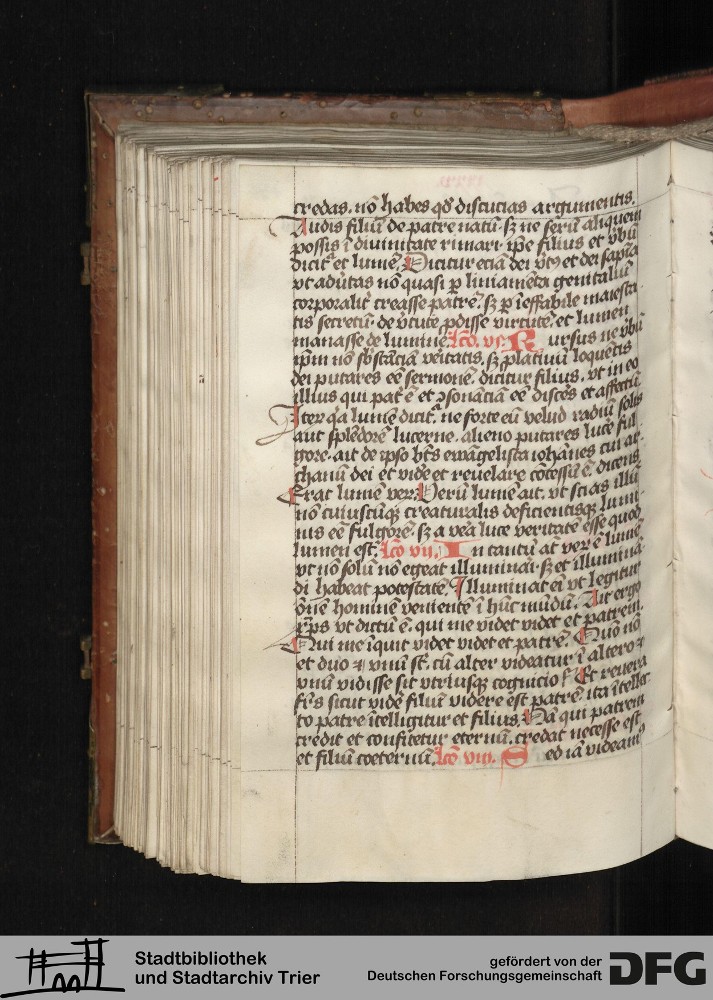 credas. nō habes qd̄ discucias argumentis.
Audis filiū de patre natū. sz ne ferū aliquem
possis ī diuinitate rimari. ip̄e filius et vbū
dicit᷑ et lumē. Dicitur eciā dei vt᷑9 et dei sapīa
vt adūtas nō quasi p liniamēta genitaliū
corporalit᷑ creasse patrē. sz p īeffabile maiesta
tis secretū. de v᷑tute pdisse virtutē. et lumen
manasse de lumine. Lcō. vj. Rursus ne vbū
ip̄m nō sb̄stāciā veritatis. sz platiuū loquētis
dei putares eē sermonē. dicitur filius. vt in eo
illius qui pat᷑ ē et ꝯsonāciā eē discēs et affectū.
Iter q̄a lumē dicit᷑. ne forte eū velud radiū solis
aut splēdorē lucerne. alieno putares luce ful
gore. ait de ip̄so bt̄s ewāgelista iohānes cui ar
chanū dei et videre et reuelare cōcessū ē. dicens
Erat lumē verū. Verū lumē ait. vt scias illū
nō cuiuscūqz creaturalis deficientisqz lumi
nis eē fulgorē. sz a vēa luce veritatē esse quod
lumen est. Lcō vij. In tantū at̄ verē ē lumē
vt nō solū nō egeat illuminari. sz et illuminā
di habeat potestatē. Illuminat eī vt legitur
ōnē hominē venientē ī hūc mūdū. Ait ergo
xp̄s vt dictū ē. qui me videt videt et patrem.
Qui me īquit videt videt et patrē. Quō nō
et duo et vnū st̄. cū alter videatur ī altero et
vnū vidisse sit vtriusqz cognicio? Et reuera
fr̄s sicut vidē filiū videre est patrē. ita ītellec
to patre ītelligitur et filius. Nā qui patrem
credit et confitetur eternū. credat necesse est
et filiū coeternū. Lcō viij. Sed iā videam9
Stadtbibliothek
und Stadtarchiv Trier
gefördert von der
Deutschen Forschungsgemeinschaft
DFG